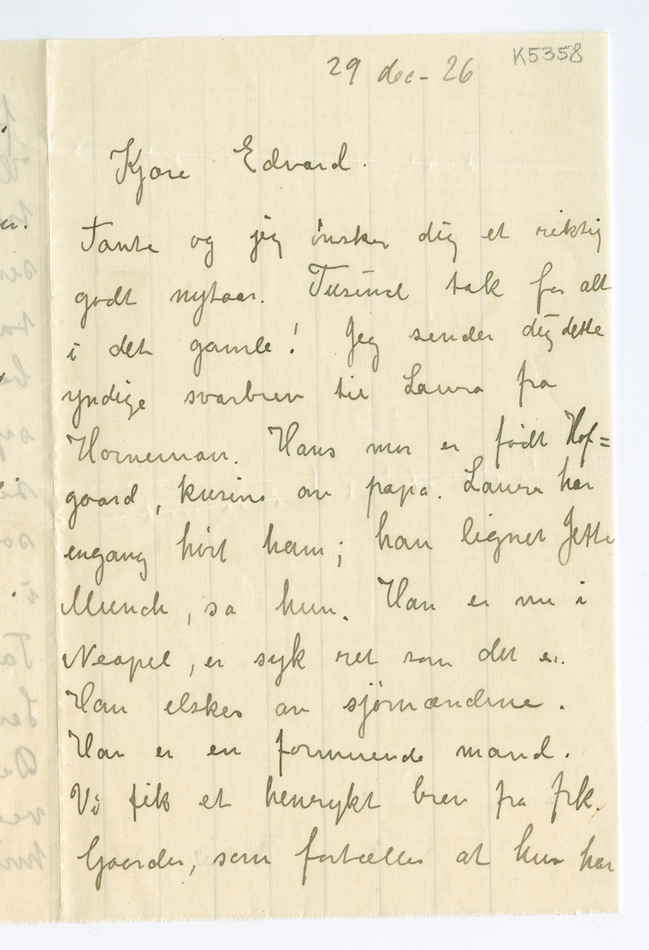 K5358
29 dec - 26
Kjære Edvard.
Tante og jeg ønsker dig et riktig
godt nytaar. Tusind tak for alt
i det gamle! Jeg sender dig dette
yndige svarbrev til Laura fra
Horneman. Hans mor er født Hof=
gaard, kusine av papa. Laura har
engang hørt ham; han ligner Jette
Munch, sa hun. Han er nu i
Neapel, er syk ret som det er.
Han elskes av sjømændene.
Han er en formuende mand.
Vi fik et henrykt brev fra frk.
Gaarder, som fortæller at hun har